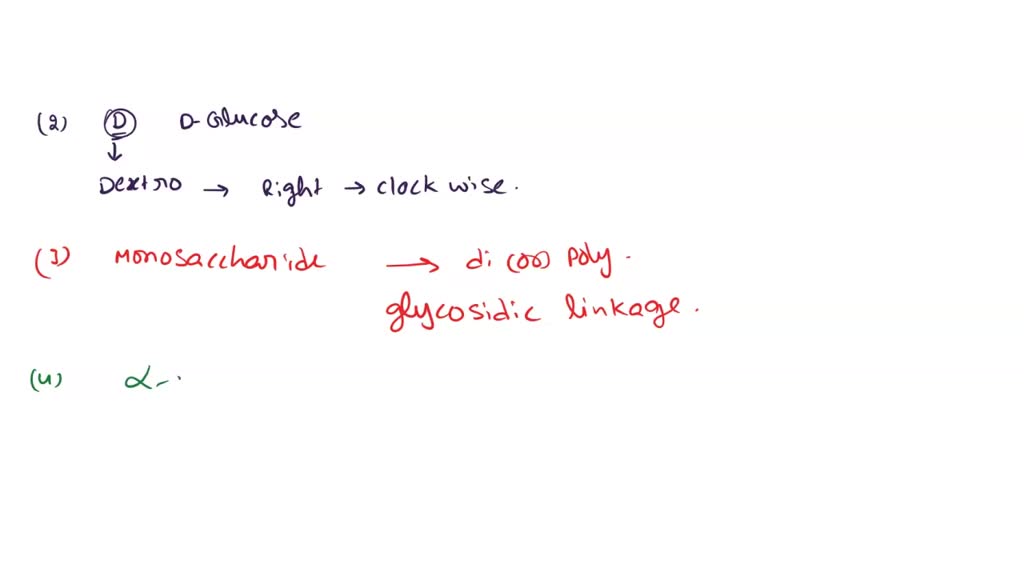 (2) D D-Glucose
↓
Dextro → Right → clock wise.
(3) Monosaccharide → di (or) Poly.
glycosidic linkage.
(4) α-